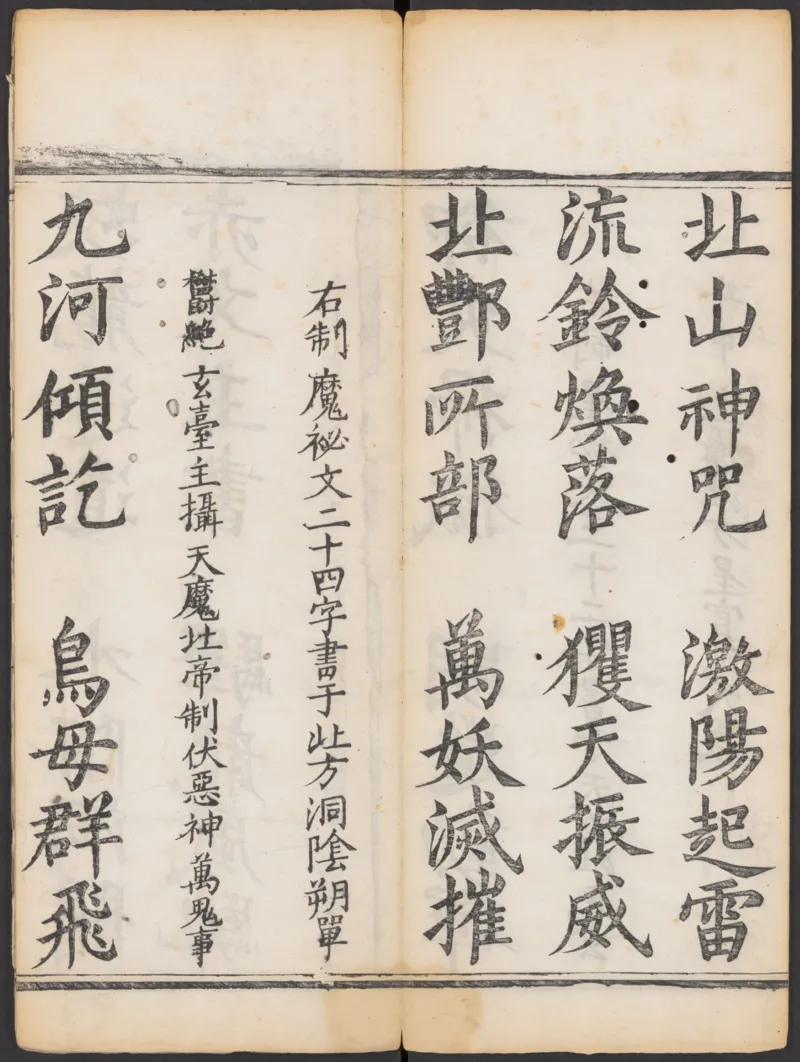 北山神咒 激陽起雷
流鈴煥落 玃天振威
北酆所部 萬妖滅摧
右制魔祕文二十四字書于北方洞陰朔單
鬱絶玄臺主攝天魔北帝制伏惡神萬鬼事
九河傾訖 鳥母群飛